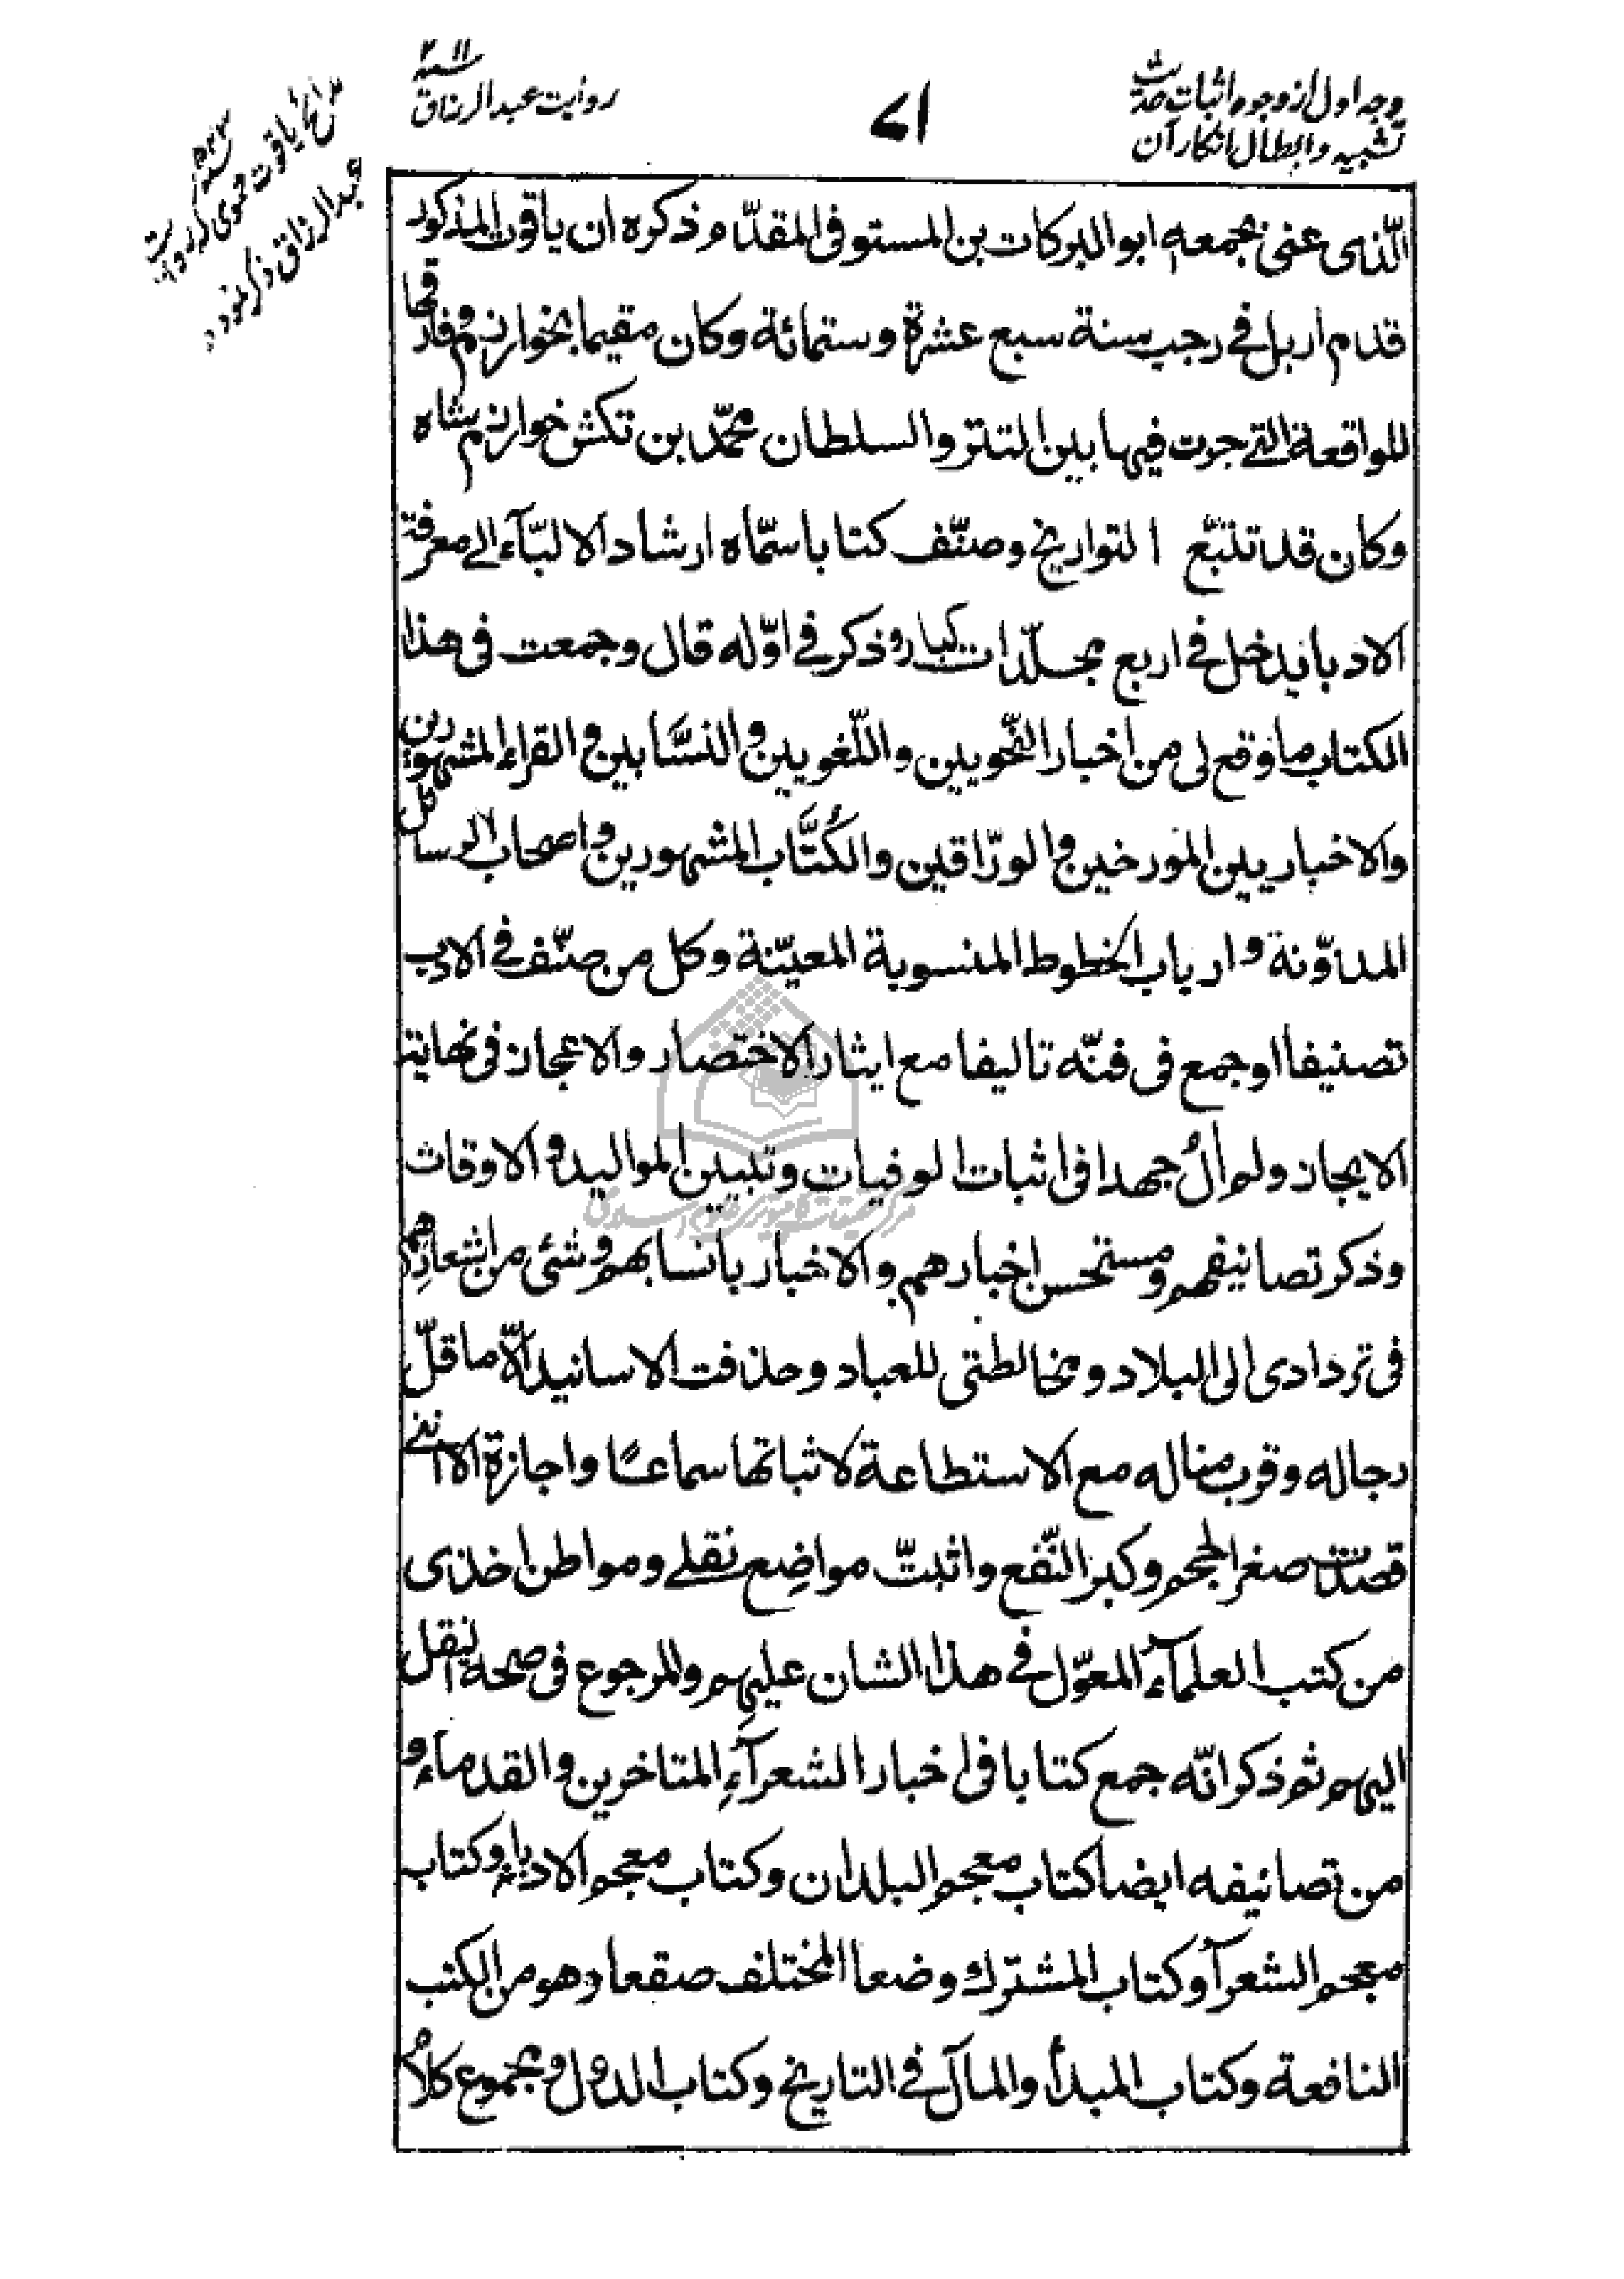 وجه اول از وجوه اثبات حدیث
تشبیه و ابطال انکار آن
۷۱
سنه ۲۱۱
روایت عبدالرزاق
یاقوت حموی که روایت
عبدالرزاق ذکر نموده
الّذی عنی بجمعه ابو البرکات بن المستوفی المقدّم ذکره ان یاقوت المذکور
قدم اربل فی رجب سنة سبع عشرة و ستمائة وکان مقیما بخوارزم و فارقها
للواقعة التی جرت فیها بین التتر و السلطان محمّد بن تکش خوارزم شاه
وکان قد تتبّع التواریخ و صنّف کتابا سمّاه ارشاد الالبّآء الی معرفة
الادبا یدخل فی اربع مجلّدات کبار و ذکر فی اوّله قال و جمعت فی هذا
الکتاب ما وقع لی من اخبار النّحویین و اللّغویین و النسَّابین و القراء المشهورین
والاخباریین المورخین و الورّاقین و الکُتَّاب المشهورین و اصحاب الرسائل
المدوّنة و ارباب الخطوط المنسوبة المعیّنة و کل من صنّف فی الادب
تصنیفا او جمع فی فنّه تالیفا مع ایثار الاختصار و الاعجاز فی نهایة
الایجاز و لم اٰلُ جهدا فی اثبات الوفیات و تبیین الموالید و الاوقات
و ذکر تصانیفهم و مستحسن اخبارهم و الاخبار بانسابهم و شئی من اشعارهم
فی تردادی الی البلاد و مخالطتی للعباد و حذفت الاسانید الّا ما قلّ
رجاله و قرب مناله مع الاستطاعة لاثباتها سماعًا و اجازة الا اننی
قصدت صغر الحجم و کبر النّفع و اثبتّ مواضِع نقلی و مواطن اخذی
من کتب العلمآء المعوّل فی هذا الشان علیهم و المرجوع فی صحة النقل
الیهم ثم ذکر انّه جمع کتابا فی اخبار الشعرآءِ المتاخرین و القدماء و
من تصانیفه ایضا کتاب معجم البلدان و کتاب معجم الادباء و کتاب
معجم الشعرآ و کتاب المشترك وضعا المختلف صقعا و هو من الکتب
النافعة و کتاب المبدأ و المآل فی التاریخ و کتاب الدول و مجموع کلام